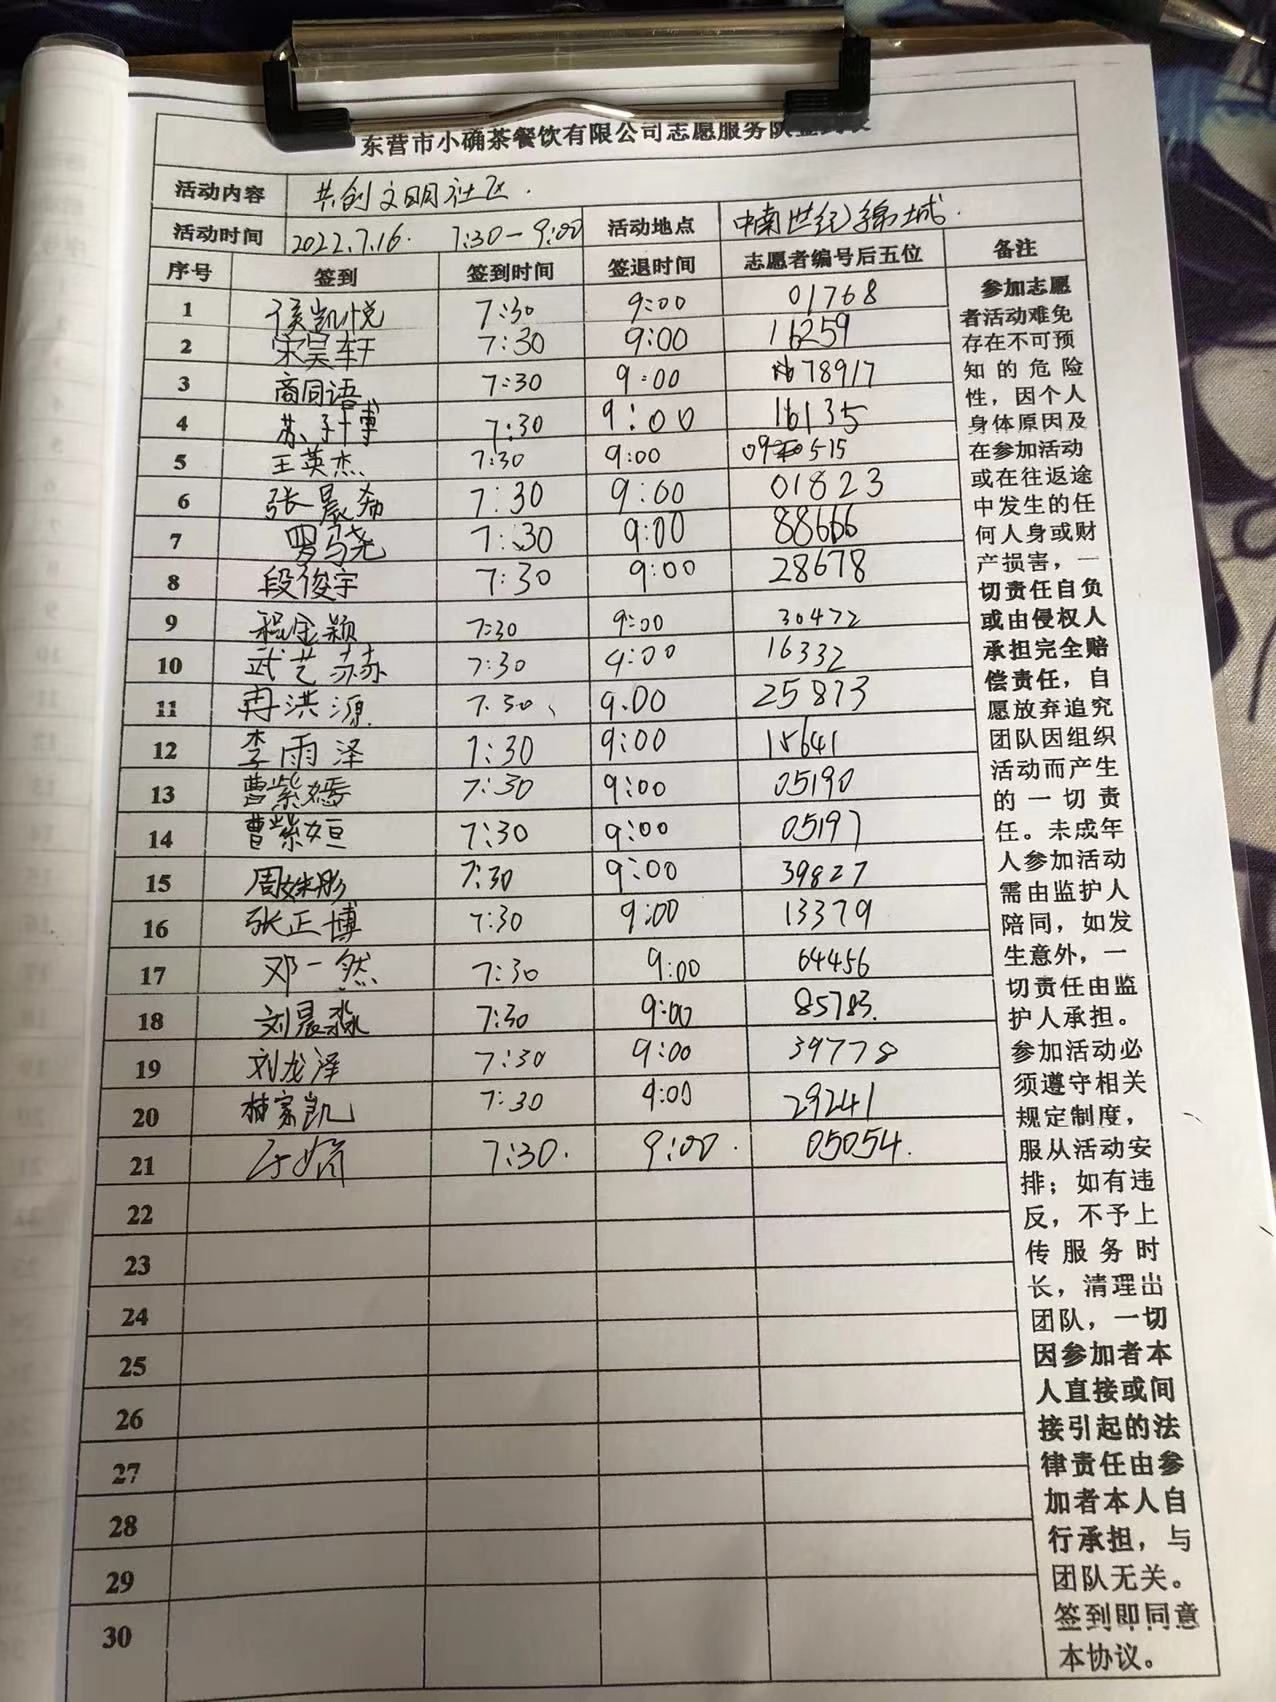 东营市小确茶餐饮有限公司志愿服务队签到表
活动内容 共创文明社区.
活动时间 2022.7.16. 7:30-9:00 活动地点 中南世纪锦城.
序号 签到 签到时间 签退时间 志愿者编号后五位 备注
1 侯凯悦 7:30 9:00 01768
2 宋昊轩 7:30 9:00 16259
3 商同语 7:30 9:00 78917
4 苏子博 7:30 9:00 16135
5 王英杰 7:30 9:00 515
6 张晨希 7:30 9:00 01823
7 罗马尧 7:30 9:00 88666
8 段俊宇 7:30 9:00 28678
9 程金颖 7:30 9:00 30472
10 武艺赫 7:30 9:00 16332
11 冉洪源 7:30、 9:00 25873
12 李雨泽 7:30 9:00 15641
13 曹紫嫣 7:30 9:00 05190
14 曹紫姮 7:30 9:00 05197
15 周姝彤 7:30 9:00 39827
16 张正博 7:30 9:00 13379
17 邓一然 7:30 9:00 64456
18 刘晨淼 7:30 9:00 85783.
19 刘龙泽 7:30 9:00 39778
20 林家凯 7:30 9:00 29241
21 7:30. 9:00. 05054.
22
23
24
25
26
27
28
29
30
参加志愿
者活动难免
存在不可预
知的危险
性，因个人
身体原因及
在参加活动
或在往返途
中发生的任
何人身或财
产损害，一
切责任自负
或由侵权人
承担完全赔
偿责任，自
愿放弃追究
团队因组织
活动而产生
的一切责
任。未成年
人参加活动
需由监护人
陪同，如发
生意外，一
切责任由监
护人承担。
参加活动必
须遵守相关
规定制度，
服从活动安
排；如有违
反，不予上
传服务时
长，清理出
团队，一切
因参加者本
人直接或间
接引起的法
律责任由参
加者本人自
行承担，与
团队无关。
签到即同意
本协议。